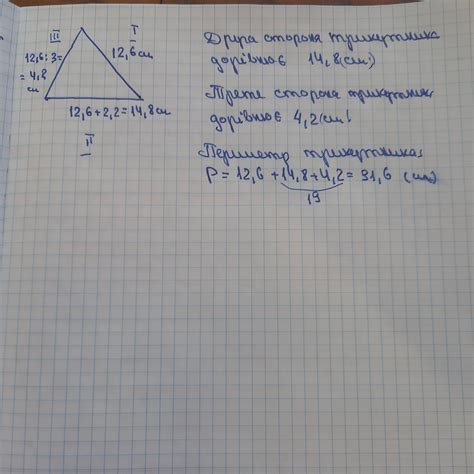 III
I
12,6 : 3=
= 4,8
см
12,6 см
12,6 + 2,2 = 14,8 см
II
Друга сторона трикутника
дорівнює 14,8 (см)
Третя сторона трикутника
дорівнює 4,2 (см)
Периметр трикутника:
P = 12,6 + 14,8 + 4,2 = 31,6 (см)
19